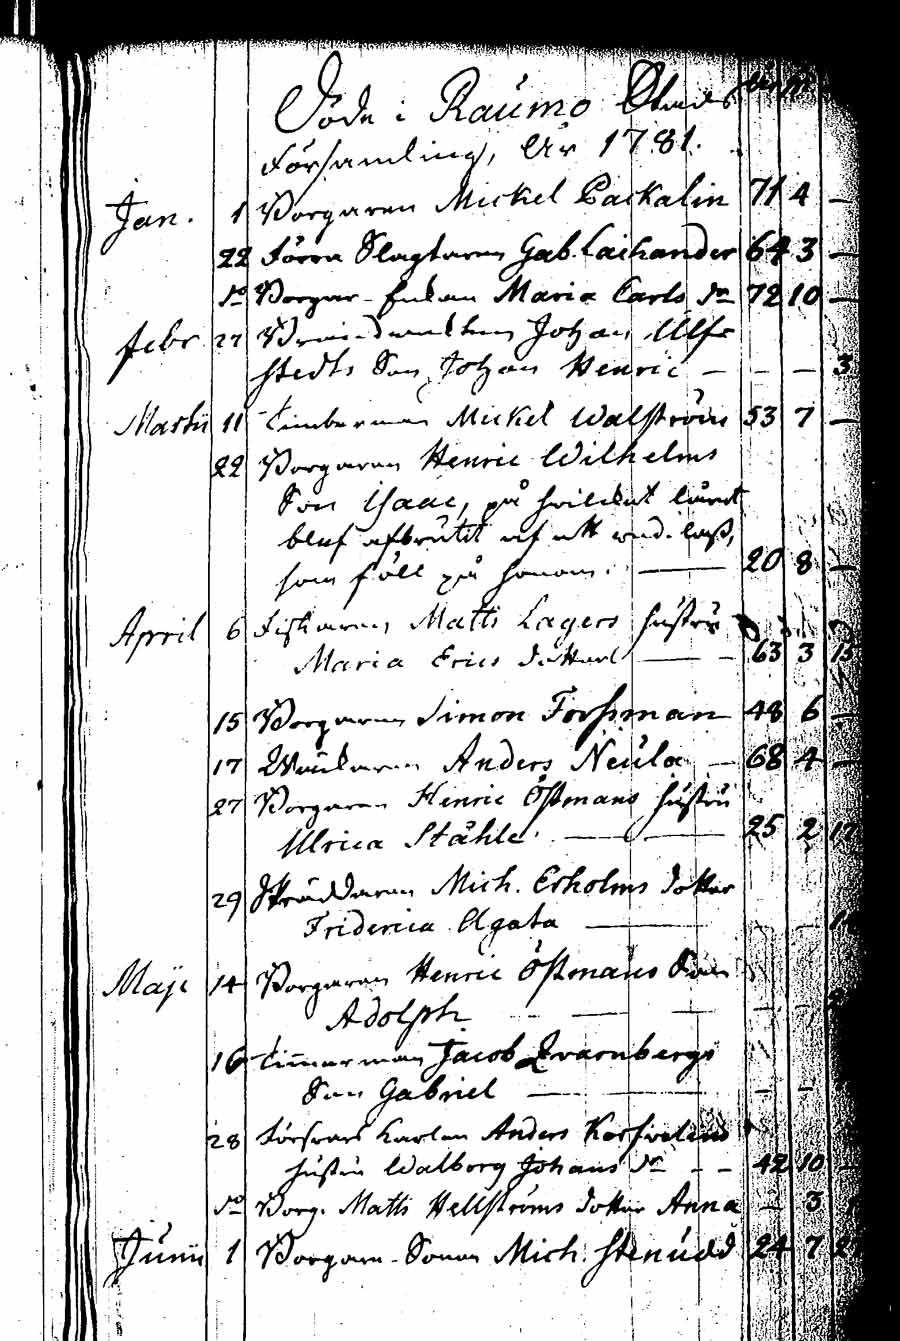 Döde i Raumo Stads
Församling, År 1781.
Jan. 1 Borgaren Mickel Packalin 71 4 —
22 Förra Slagtaren Gab. Laihander 64 3 —
do Borgar-Enkan Maria Carls dr 72 10 —
febr 27 Johan Ulf
stedts Son Johan Henric — — — 3
Martii 11 Timberman Mickel Walström 53 7 —
22 Borgaren Henric Wilhelms
Son Isaac, på hvilket låret
blef afbrutit af ett lass,
som föll på honom. — 20 8 —
April 6 Fiskaren Matts Lagers hustru
Maria Erics dotter — — 63 3 15
15 Borgaren Simon Forssman 48 6 —
17 Anders Neula — 68 4 —
27 Borgaren Henric Östmans hustru
Ulrica Ståhle. — — 25 2 17
29 Skräddaren Mich. Erholms dotter
Friderica Agata —
Maji 14 Borgaren Henric Östmans Son
Adolph — — —
16 Timmerman Jacob Qvarnbergs
Son Gabriel — — — —
28 Anders
hustru Walborg Johans dr — — 42 10 —
do Borg. Matts Hellströms dotter Anna — 3
Junii 1 Borgare-Sonen Mich. Stenudd 24 7